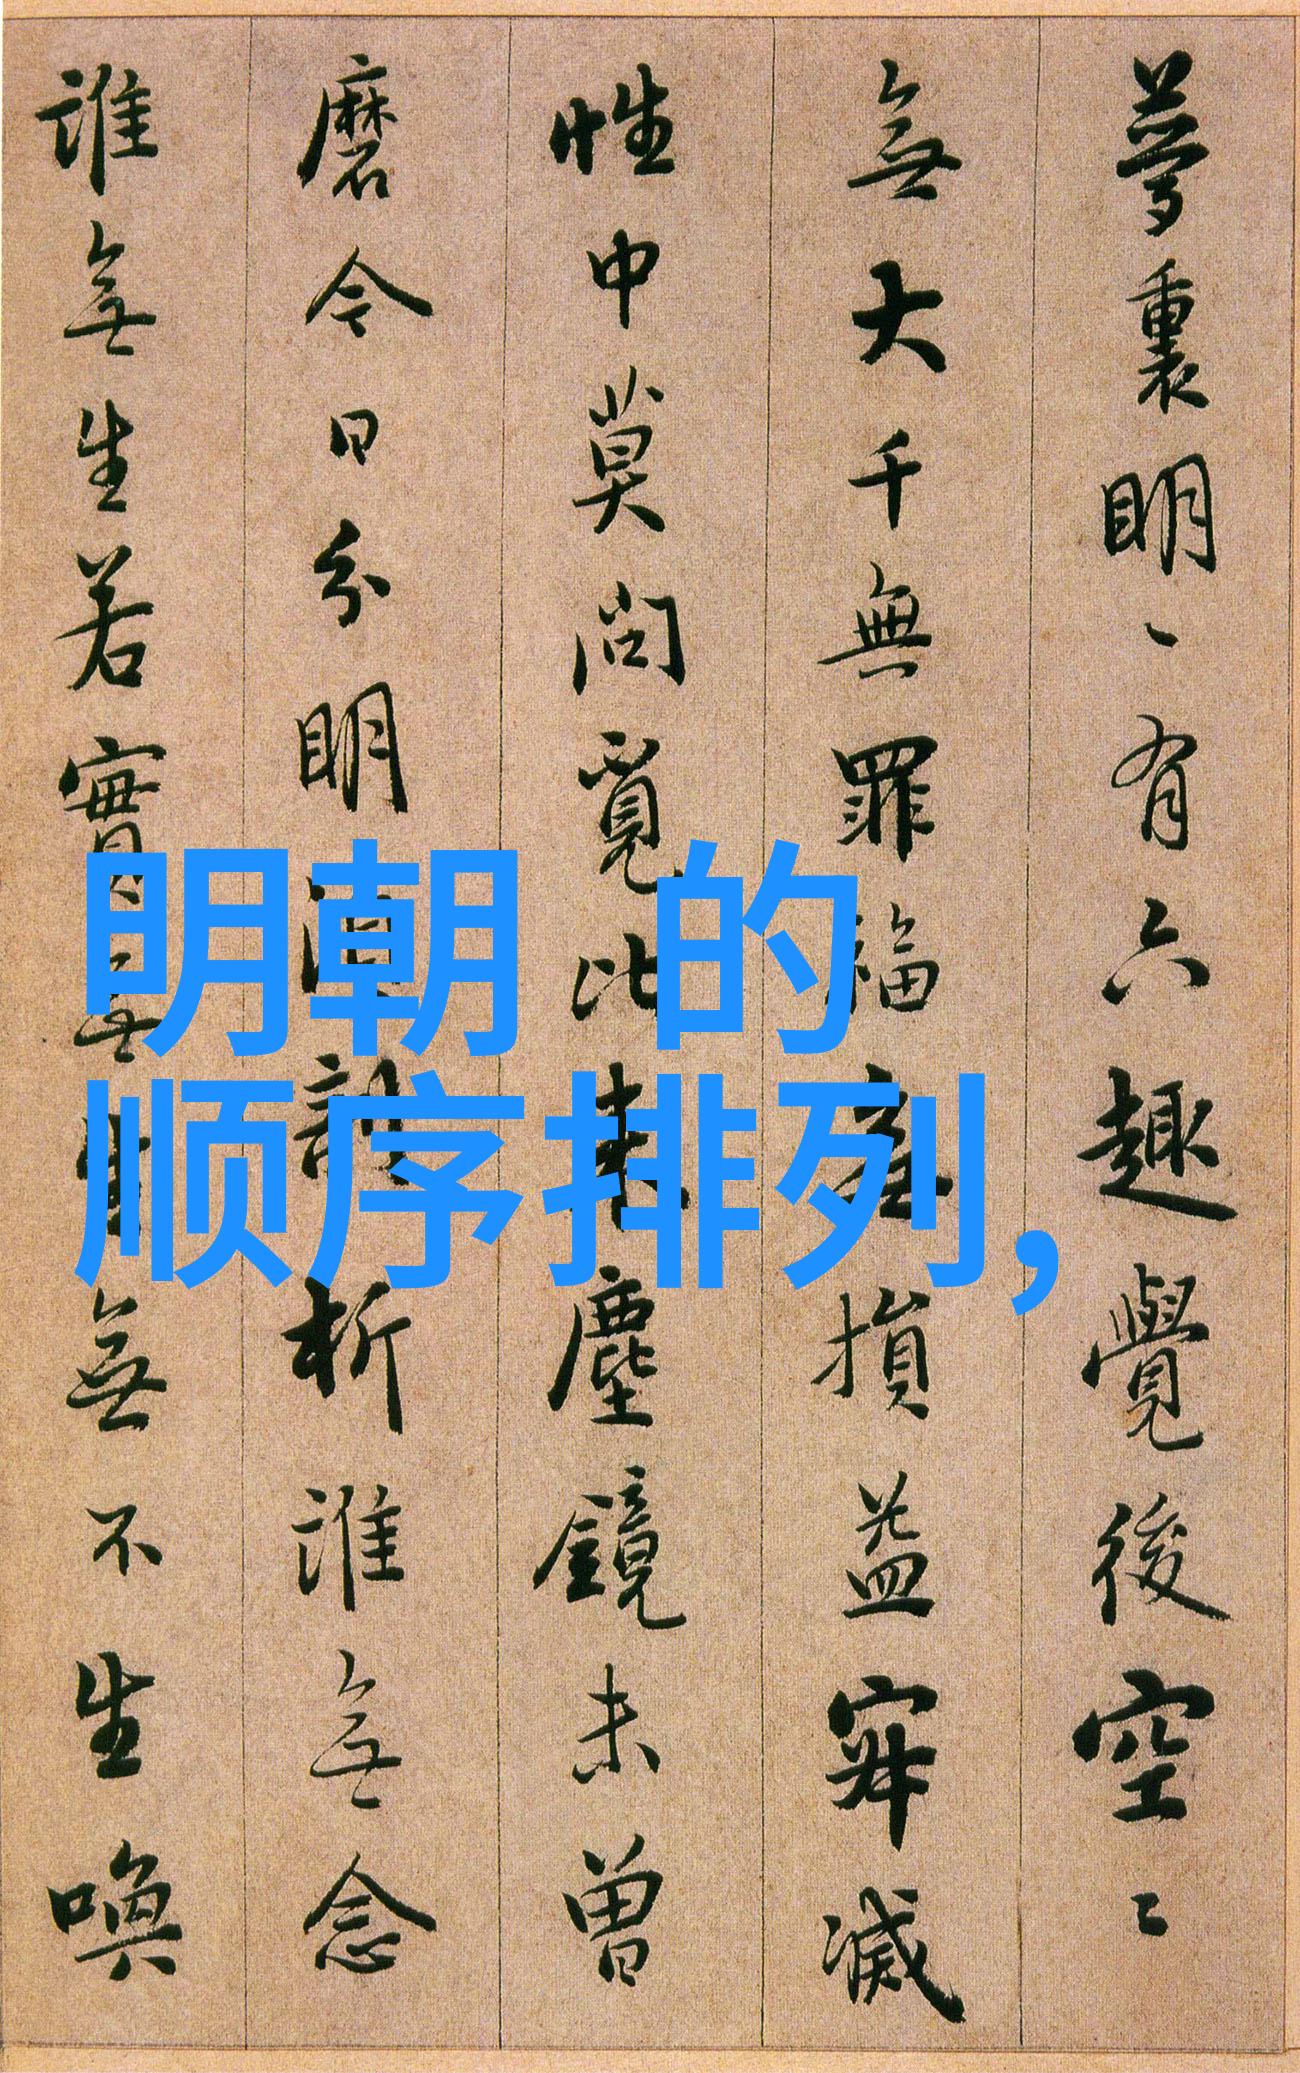 夢裏明〻有六趣覺後空〻
無大千無罪福無損益寂滅
性中莫問覓比来塵鏡未曾
磨今日分明須剖析誰無念
誰無生若實無生無不生喚
明朝 的
顺序排列,